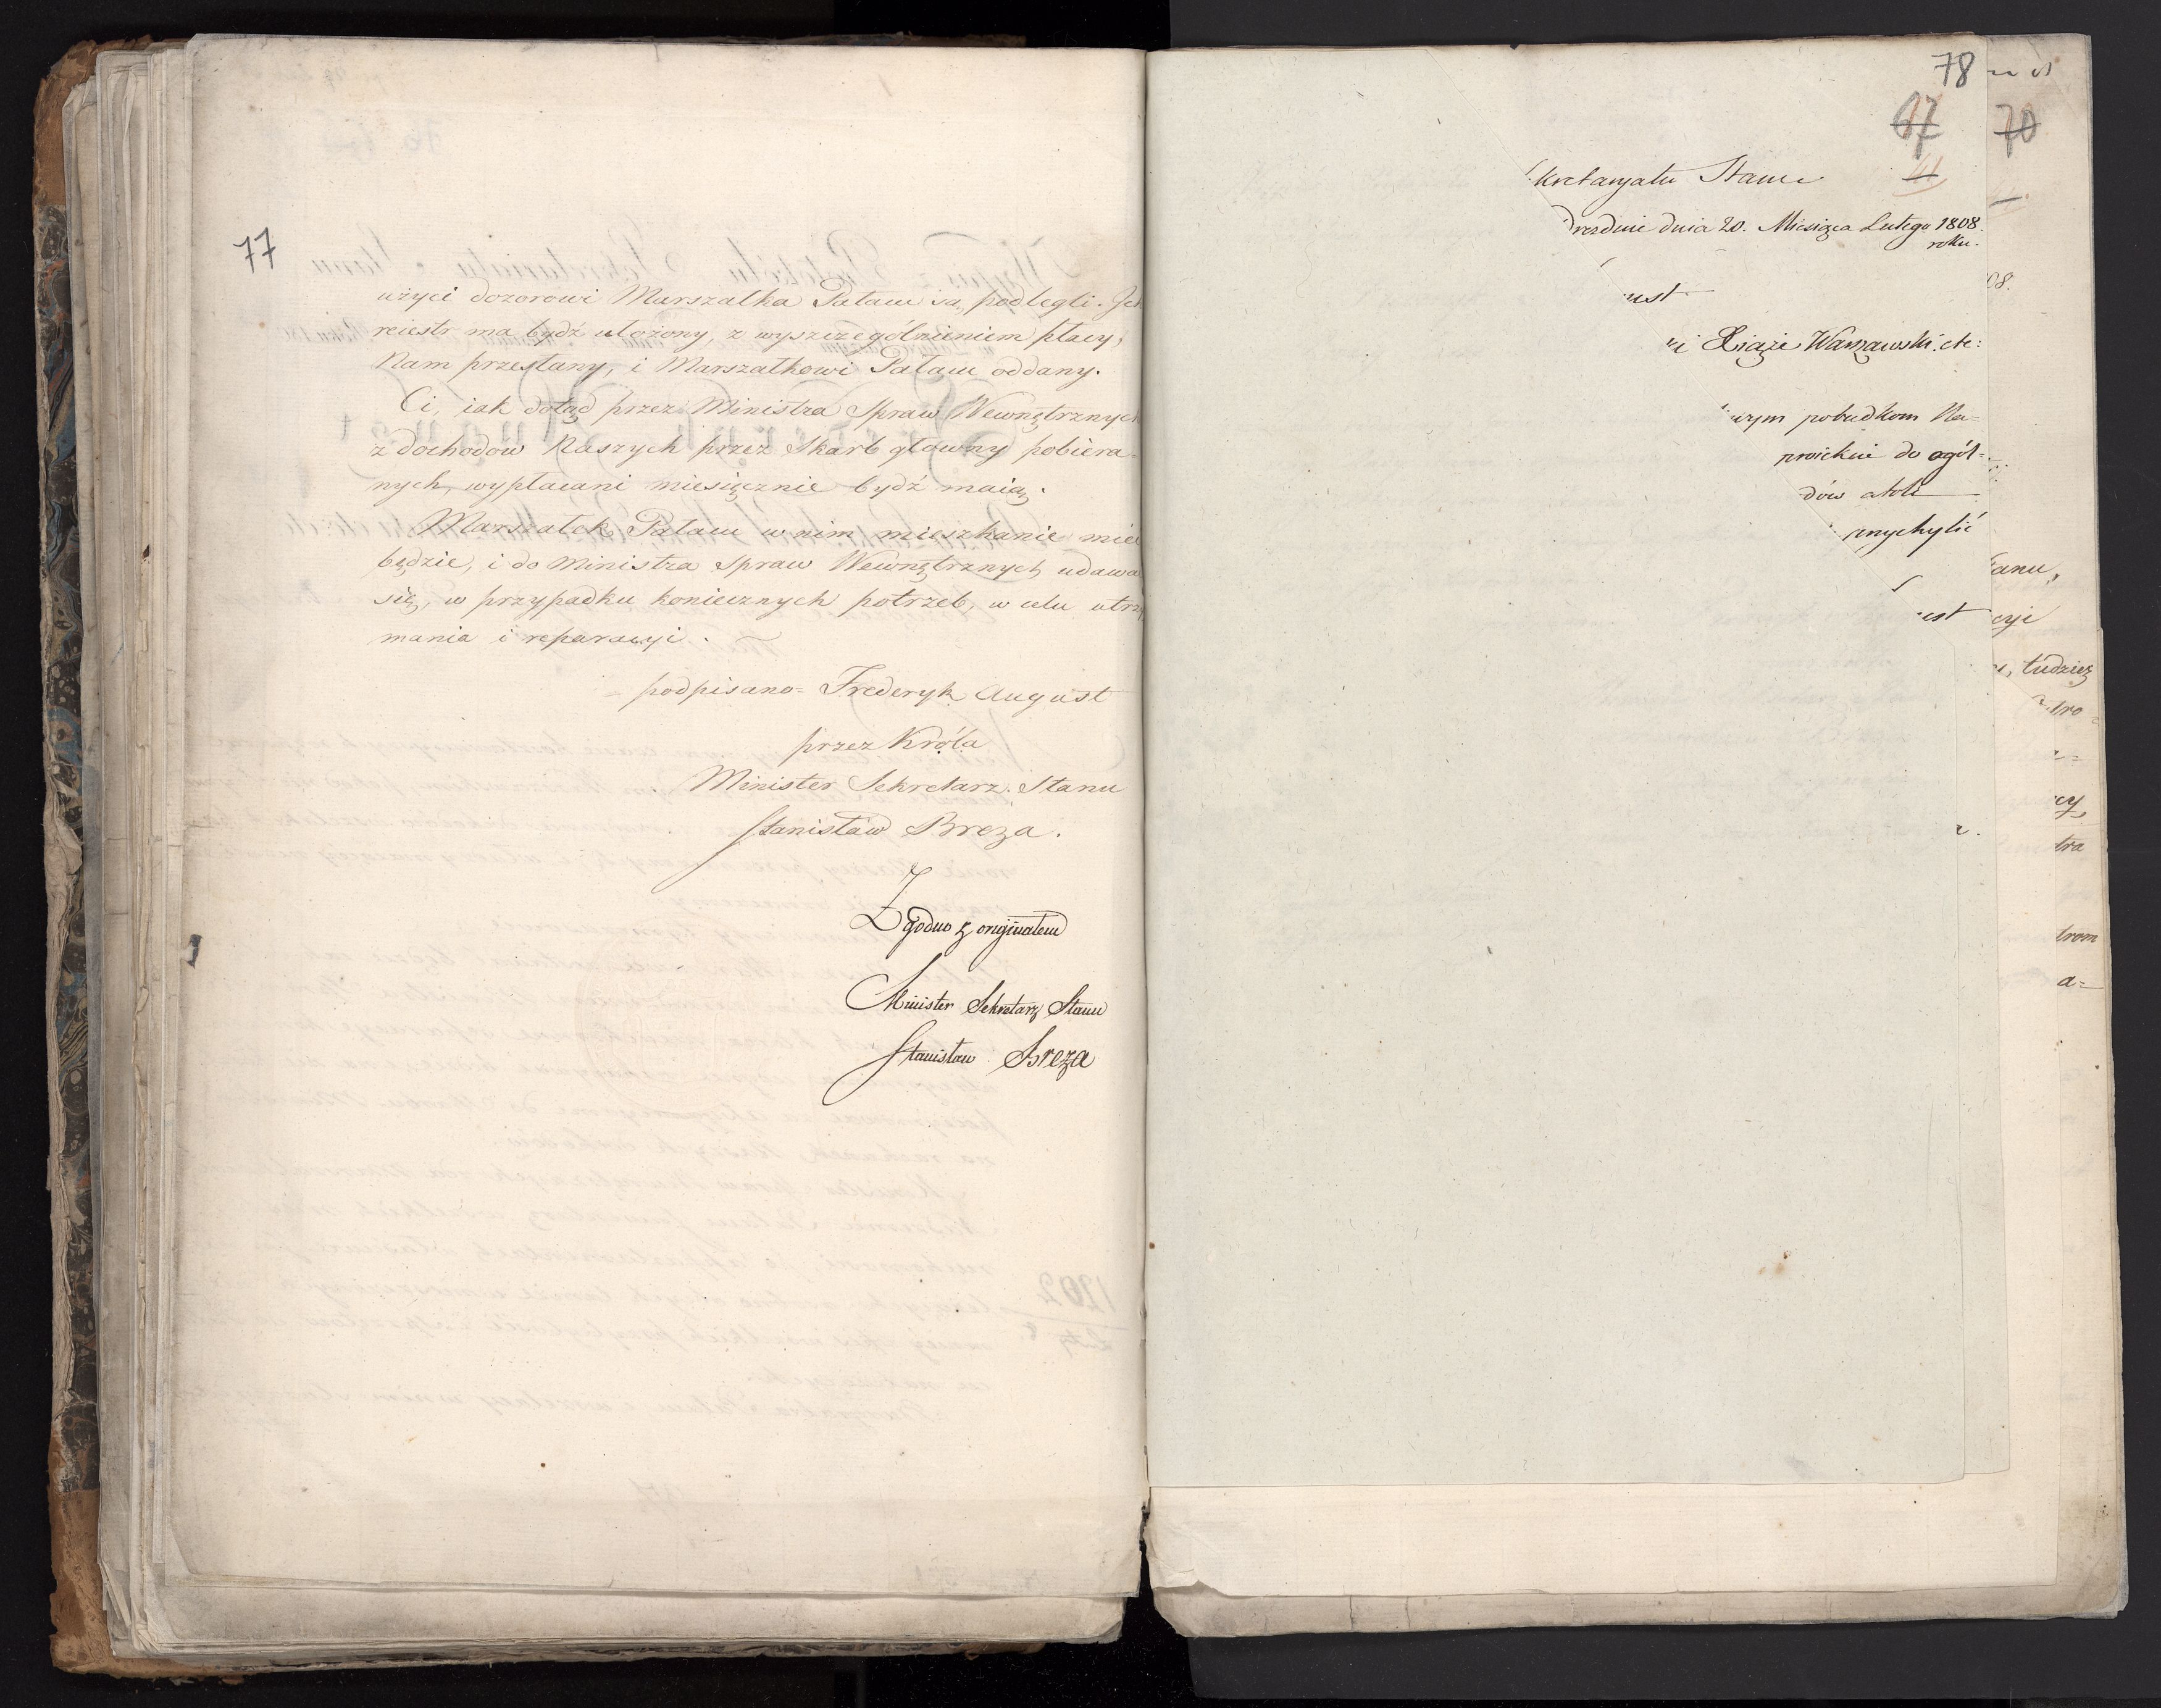 77
użyci dozorowi Marszałka Pałacu są podlegli. Ich
reiestr ma bydź ułożony, z wyszczególnieniem płacy,
Nam przesłany, i Marszałkowi Pałacu oddany.
Ci, iak dotąd przez Ministra Spraw Wewnętrznych
z dochodow Naszych przez Skarb główny pobiera=
nych, wypłacani miesięcznie bydź maią.
Marszałek Pałacu w nim mieszkanie mieć
będzie, i do Ministra Spraw Wewnętrznych udawa
się, w przypadku koniecznych potrzeb, w celu utrzy
mania i reparacyi.
podpisano= Frederyk August
przez Króla
Minister Sekretarz Stanu
Stanisław Breza.
Zgodno z originałem
Minister Sekretarz Stanu
Stanisław Breza
78
67
70
kretaryatu Stanu
dreznie dnia 20. Miesiąca Lutego 1808.
roku.
08.
ust
Xiąże Warszawski. etc:
szym pobudkom Na=
proiekcie do ogól=
dów atoli
przychylić
anu,
ust
cyi
tudzież
tro=
cy,
tra
trom
a=